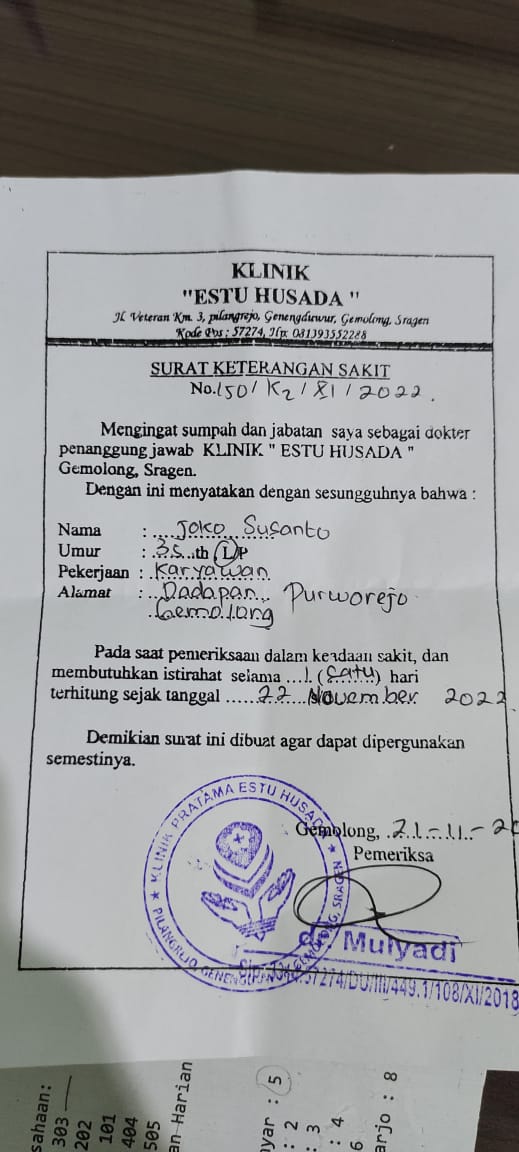 KLINIK
"ESTU HUSADA "
Jl. Veteran Km. 3, pilangrejo, Genengduwur, Gemolong, Sragen
Kode Pos : 57274, Hp: 081393552288
SURAT KETERANGAN SAKIT
No.150/ K2 / XI / 2022.
Mengingat sumpah dan jabatan saya sebagai dokter
penanggung jawab KLINIK " ESTU HUSADA "
Gemolong, Sragen.
Dengan ini menyatakan dengan sesungguhnya bahwa :
Nama : Joko Susanto
Umur : 35 th L/P
Pekerjaan : Karyawan
Alamat : Dadapan Purworejo
Gemolong
Pada saat pemeriksaan dalam keadaan sakit, dan
membutuhkan istirahat selama ...1.(satu) hari
terhitung sejak tanggal ......22...November 2022.
Demikian surat ini dibuat agar dapat dipergunakan
semestinya.
Gemolong, 21-11-20
Pemeriksa
dr. Mulyadi
57274/DU/III/449.1/108/XI/2018
★ KLINIK PRATAMA ESTU HUSADA ★
PILANGREJO, GEMOLONG, SRAGEN
sahaan:
303
202
101
404
505
an Harian
yar : 5
: 2
: 3
: 4
6
arjo : 8